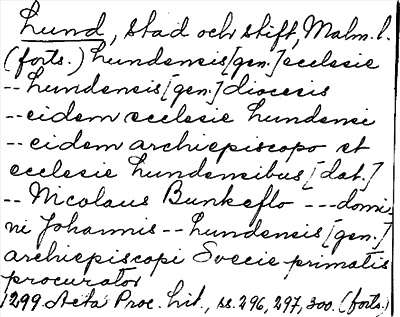 Lund, stad och stift, Malm. l.
(forts.) Lundensis [gen.] ecclesie
-- Lundensis [gen.] diocesis
-- eidem ecclesie Lundensi
-- eidem archiepiscopo et
ecclesie Lundensibus [dat.]
-- Nicolaus Bunkeflo --- domi
ni Johannis -- Lundensis [gen.]
archiepiscopi Svecie primatis
procurator
1299 Acta Proc. Lit., ss. 296, 297, 300. (forts.)